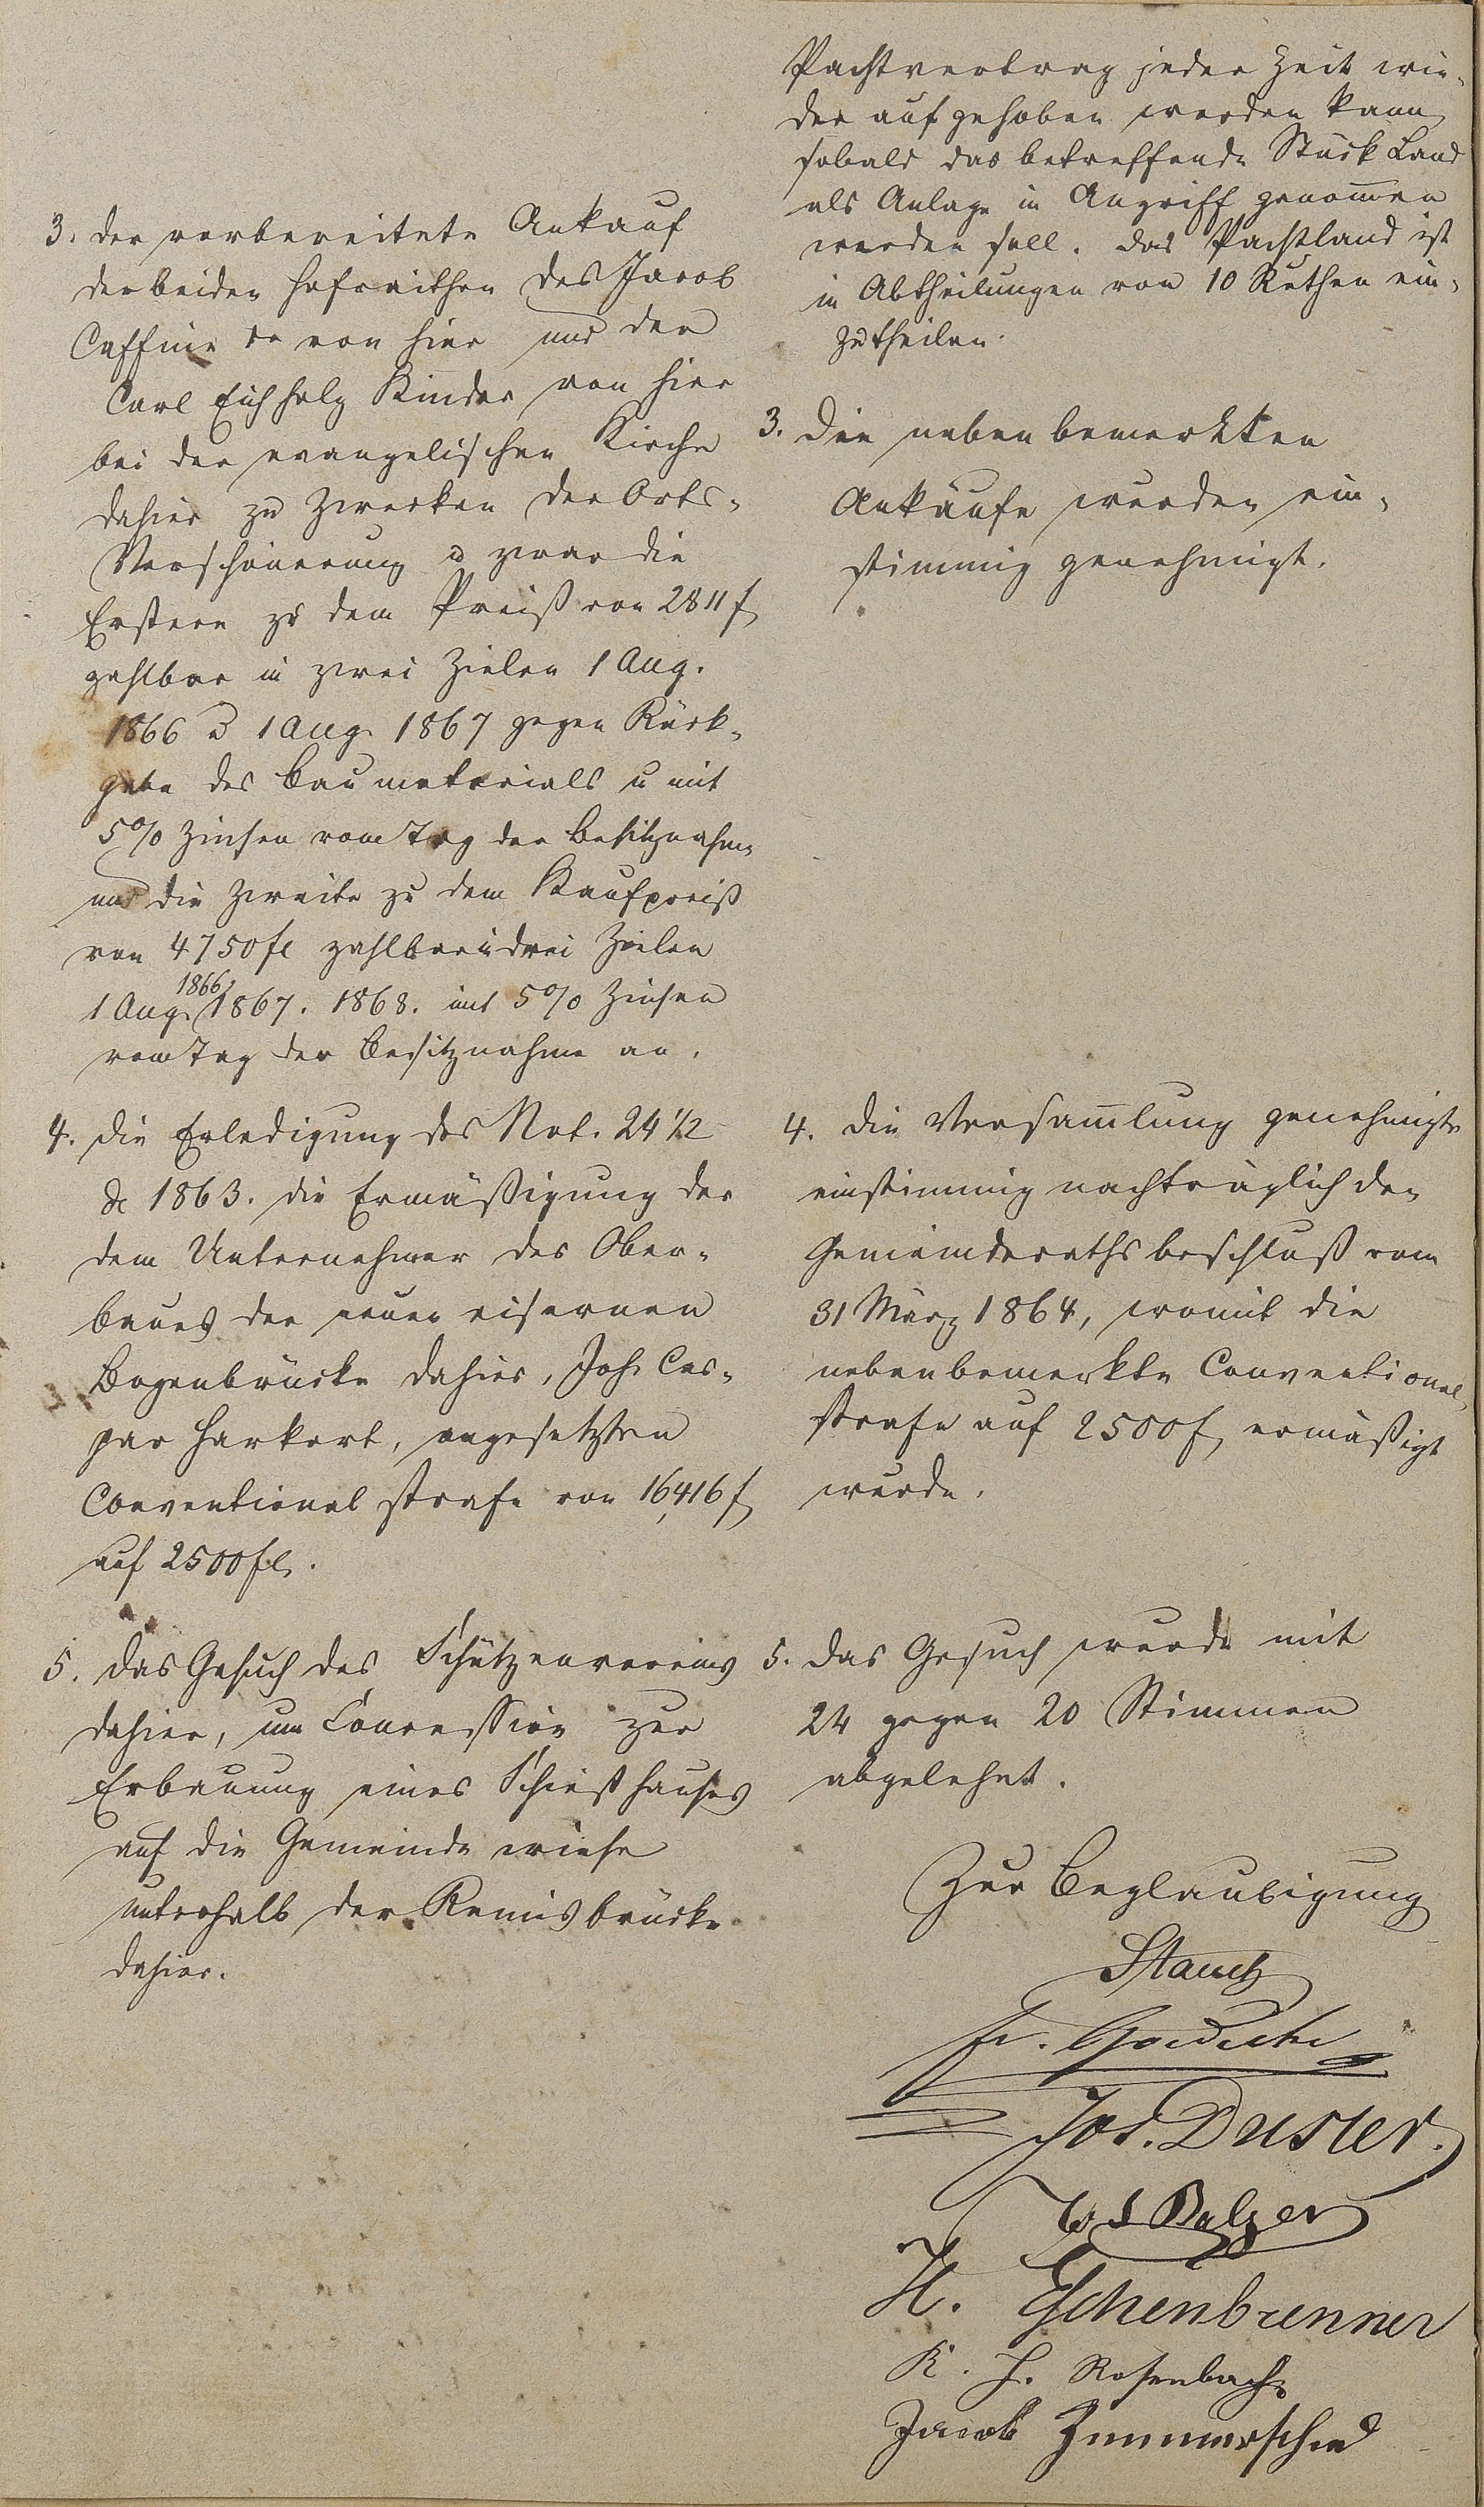 3. der vorbereitete Ankauf
der beiden Hofraithen des Jacob
Caffine von hier und der
Carl Eichholz Kinder von hier
bei der evangelischen Kirche
dahier zu Zwecken der Orts-
Verschönerung u zwar die
Erstere zu dem Preiß von 2811 f
zahlbar in zwei Zielen 1 Aug.
1866 u 1 Aug. 1867 gegen Rück-
gabe des Baumaterials u mit
5% Zinsen vom Tag der Besitznahme
und die Zweite zu dem Kaufpreiß
von 4750 fl zahlbar in drei Zielen
1 Aug. 1866, 1867. 1868. mit 5% Zinsen
vom Tag der Besitznahme an.
4. die Erledigung des Not. 24 1/2
de 1863. die Ermäßigung der
dem Unternehmer des Ober-
baues der neuen eisernen
Bogenbrücke dahier, Joh. Cas-
par Harkort, angesetzten
Conventionalstrafe von 16,416 f
auf 2500 fl.
5. das Gesuch des Schützenvereins
dahier, um Concession zur
Erbauung eines Schießhauses
auf die Gemeinde wiese
unterhalb der Remisbrücke
dahier.
Pachtvertrag jeder Zeit wie-
der aufgehoben werden kann,
sobald das betreffende Stück Land
als Anlage in Angriff genommen
werden soll. das Pachtland ist
in Abtheilungen von 10 Ruthen ein-
zutheilen.
3. Die nebenbemerkten
Ankäufe wurden ein-
stimmig genehmigt.
4. die Versammlung genehmigte
einstimmig nachträglich den
Gemeinderathsbeschluß vom
31 März 1864, womit die
nebenbemerkte Conventional-
strafe auf 2500 f, ermäßigt
wurde.
5. das Gesuch wurde mit
24 gegen 20 Stimmen
abgelehnt.
Zur Beglaubigung
Stauch
Jos. Duster.
Balzer
H. Eschenbrenner
K. H. Rosenbach
Jacob Zimmerschied